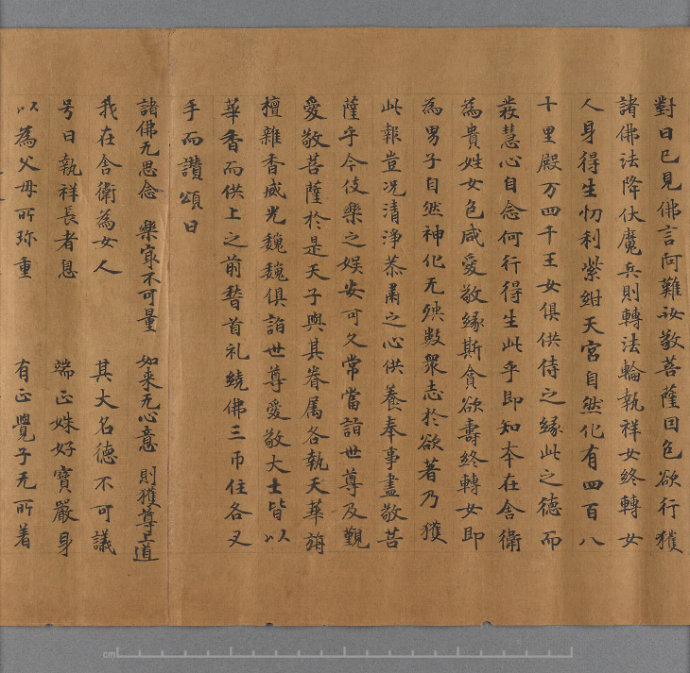 對曰已見佛言阿難汝敬菩薩因色欲行獲
諸佛法降伏魔兵則轉法輪執祥女終轉女
人身得生忉利紫紺天宮自然化有四百八
十里殿万四千玉女俱供侍之緣此之德而
發慧心自念何行得生此乎即知本在舍衛
為貴姓女色咸愛敬緣斯貪欲壽終轉女即
為男子自然神化无殃數眾志於欲著乃獲
此報豈況清淨恭肅之心供養奉事盡敬菩
薩乎今伎樂之娛安可久常當詣世尊及覲
愛敬菩薩於是天子與其眷屬各執天華旃
檀雜香威光巍巍俱詣世尊愛敬大士皆以
華香而供上之前稽首礼繞佛三帀住各叉
手而讚頌曰
諸佛无思念 樂寂不可量 如来无心意 則獲尊上道
我在舍衛為女人 其大名德不可議
号曰執祥長者息 端正姝好寶嚴身
以為父母所珎重 有正覺子无所著
cm